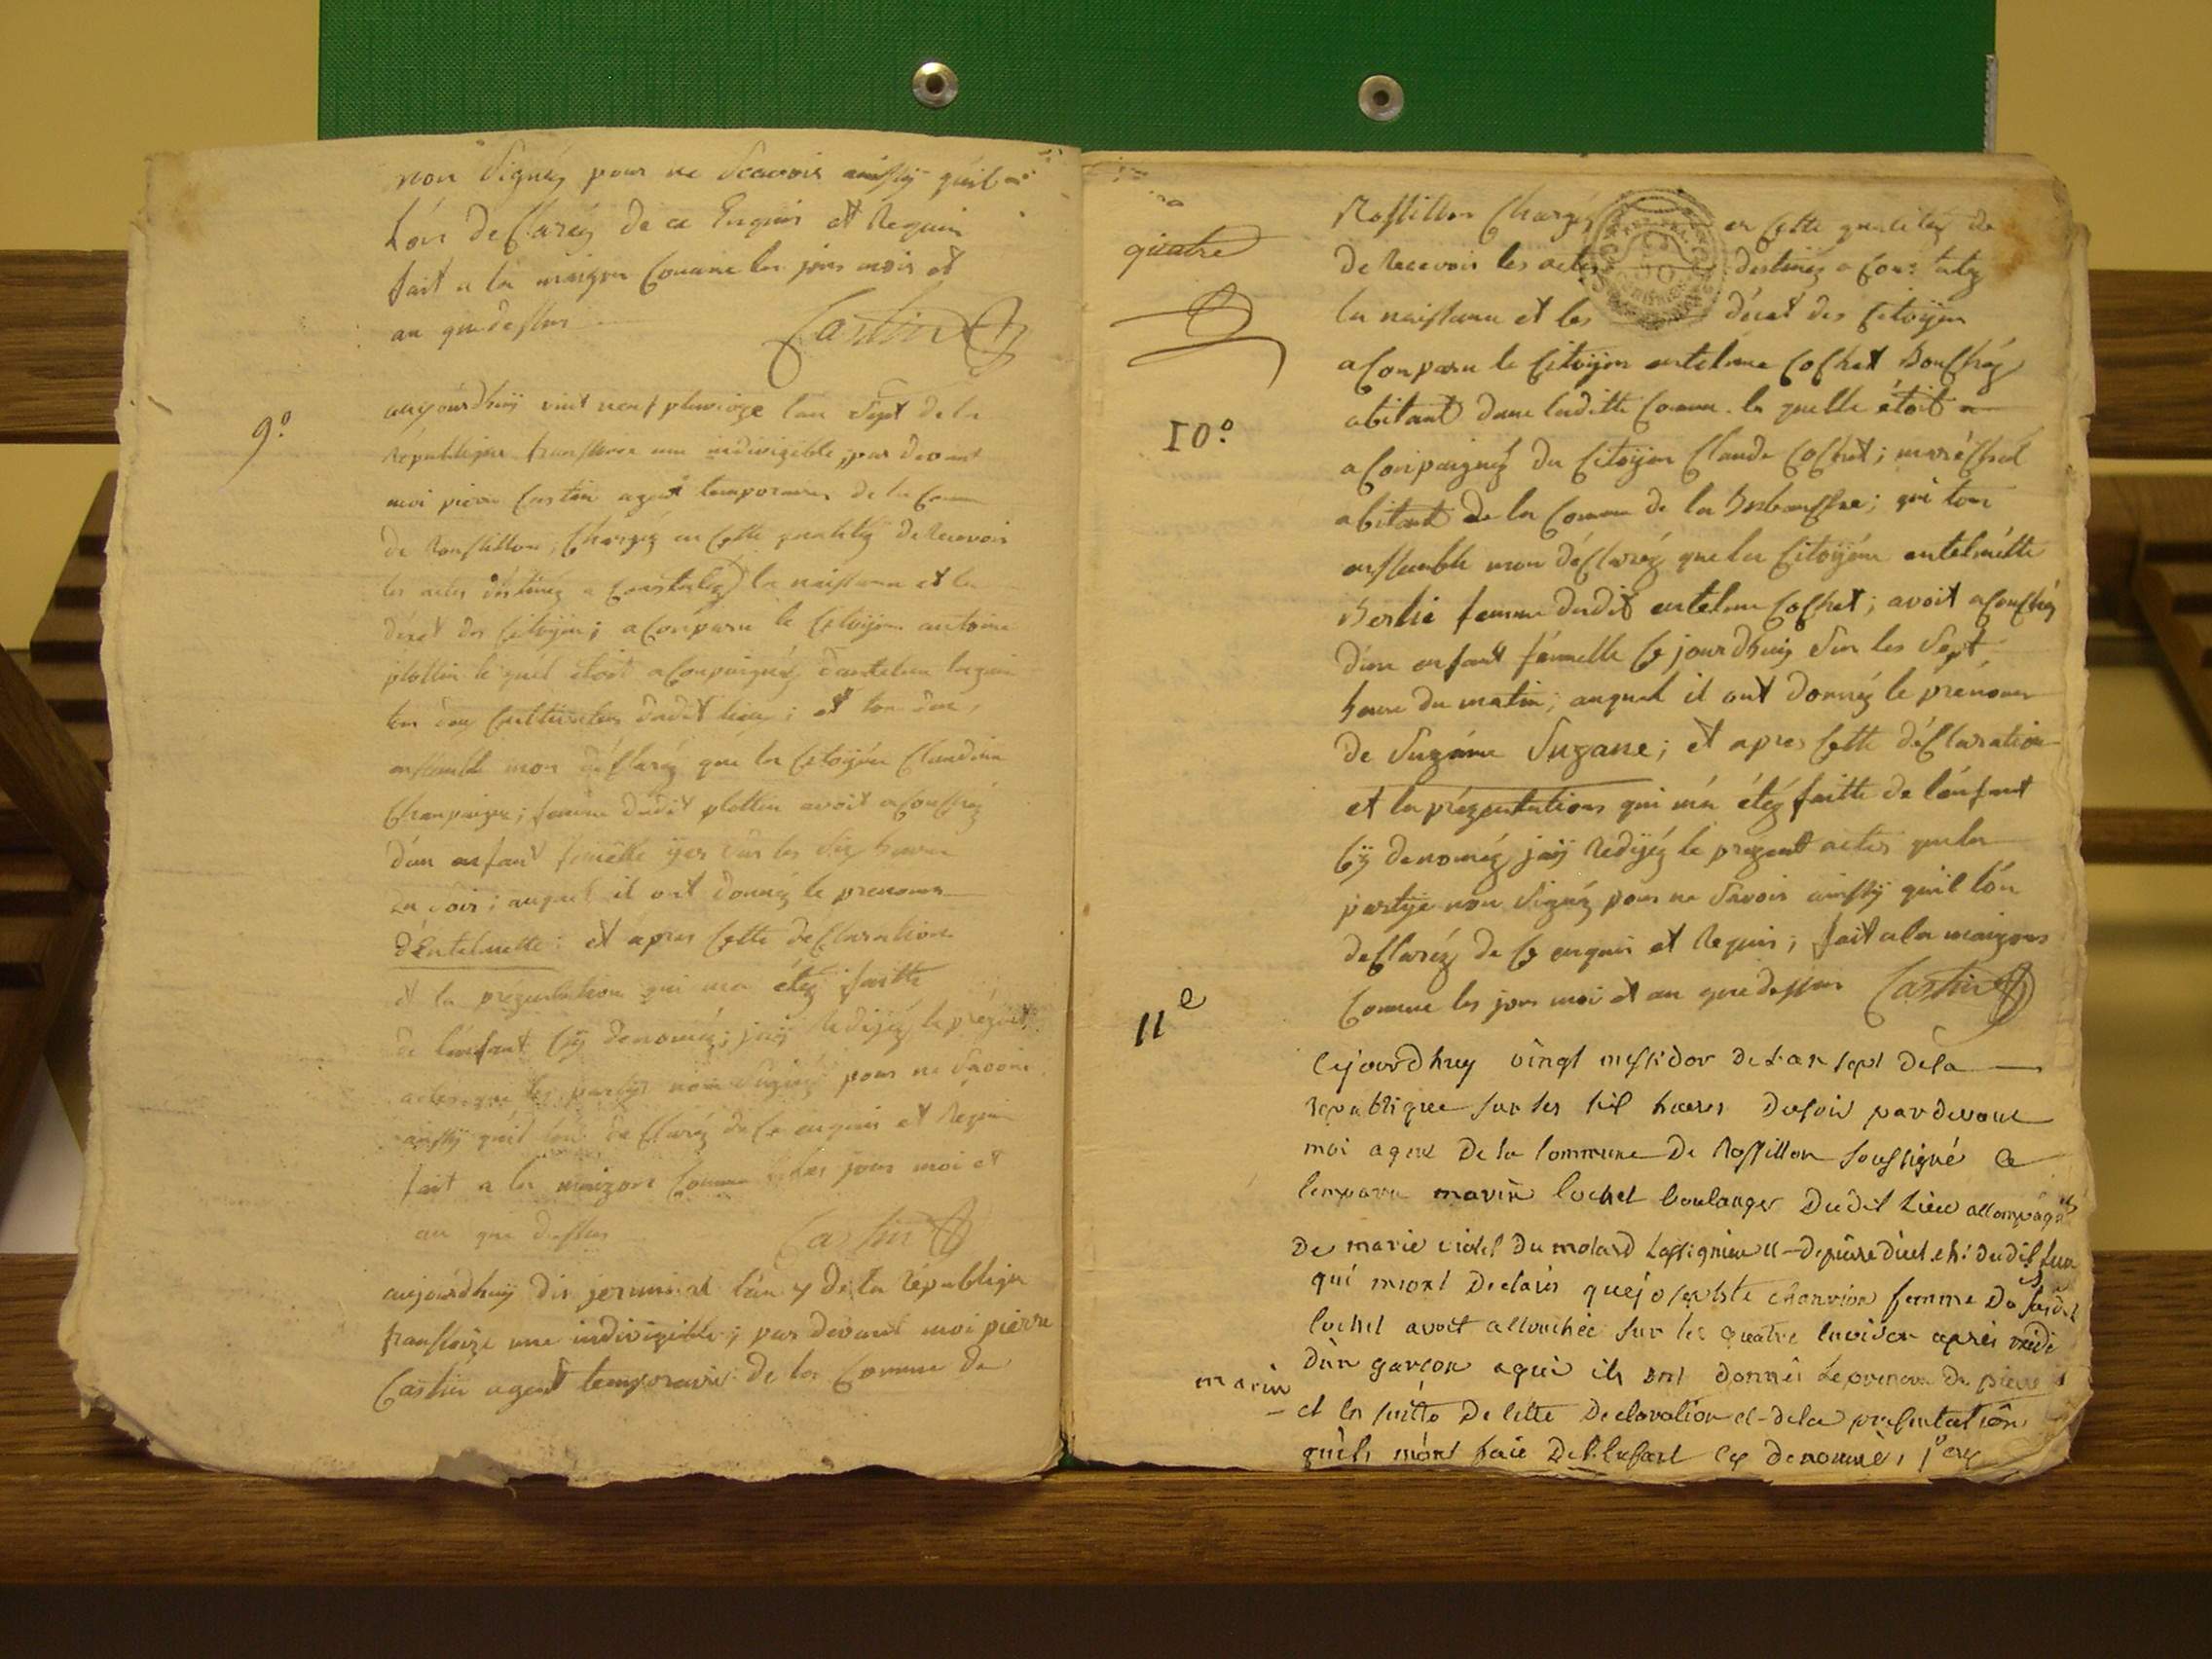 non Signéz pour ne Scavoir ainssy quil
lón de Claréz de ce Enquis et Requis
fait a la maizon Comune les jour mois et
an que dessus
Castin
9.º
aujourdhuij vint neuf pluvioze lan Sept de la
République fransloize une indivizible, par devant
moi pierre Castin agent temporaire de la Comune
de Roussillon, Chargéz en Cette qualitéz de Recevoir
les actes déstinéz a Constatéz la naissance et le
décét des Citoÿen; a Conparu le Citoÿen antoine
plottin le quél étoit aConpaigniéz dantelme
tou deux Cultivateur dudit lieu; et tou deux
enssemble mon déClaréz que la Citoÿéne Claudine
Champaigne; femme dudit plottin avoit aCouchéz
dún enfant femelle yer sur les six heure
du soir; auquel il ont donnéz le prenom
déntelmette; et áprès Cette déClaration
et la prézentation qui ma étéz faitte
de lénfant Cÿ denoméz; jaij Redijéz le prézent
actes que les partÿe non Signéz pour ne Savoir
ainssy quil lon déClaréz de Ce enquis et Requis
fait a la maizon Comune les jours moi et
an que dessus
Castin
aujourdhuij dix jerminal lán 7 de la République
fransloize une indivizible; par devant moi pierre
Castin agent temporaire de la Comune de
quatre
Rossillon Chargéz en Cette qualitéz de
de Recevoir les actes destinéz a Constatéz
la naissance et les décét des Citoÿen
10.º
aConparu le Citoÿen entelme Cochet Bouchéz
abitant dans laditte Comune le quelle étoit a
aConpaignéz du Citoÿen Claude Cochet; maréchal
abitant de la Comune de la ; qui tou
enssemble mon déClaréz que la Citoÿéne entelmétte
Berlié femme dudit entelme Cochet; avoit aCouchéz
dún enfant fémelle Ce jourdhuij Sur les Sept
heure du matin; auquel il ont donnéz le prénom
de Suzáne Suzane; et apres Cette déClaration
et la prézentations qui má étéz faitte de lénfant
Cÿ denoméz jaij Redijéz le prezent actes que la
partije non Signéz pour ne Savoir ainssij quil lón
deClaréz de Ce enquis et Requis; fait a la maizons
Comune les jour moi et an que dessus Castin
11e
Cejourdhuy vingt messidor de Lan sept dela
republique sur les sit heures dusoir pardevant
moi agent De la Commune De Rossillon soussigné a
Comparu marin Cochet boulanger Dudit Lieu accompagné
De marie violet du molard et de pierre dudit lieu
qui mont Declarés que josephte charvion femme Du susdit
Cochet avoit accouchée sur les quatre environ aprés midi
Dùn garçon aqui ils ont donnés Leprenom De pierre
marin
et en suitte De cette Declaration et dela presentation
quìls mónt faie De Lenfant cy denommé, jay